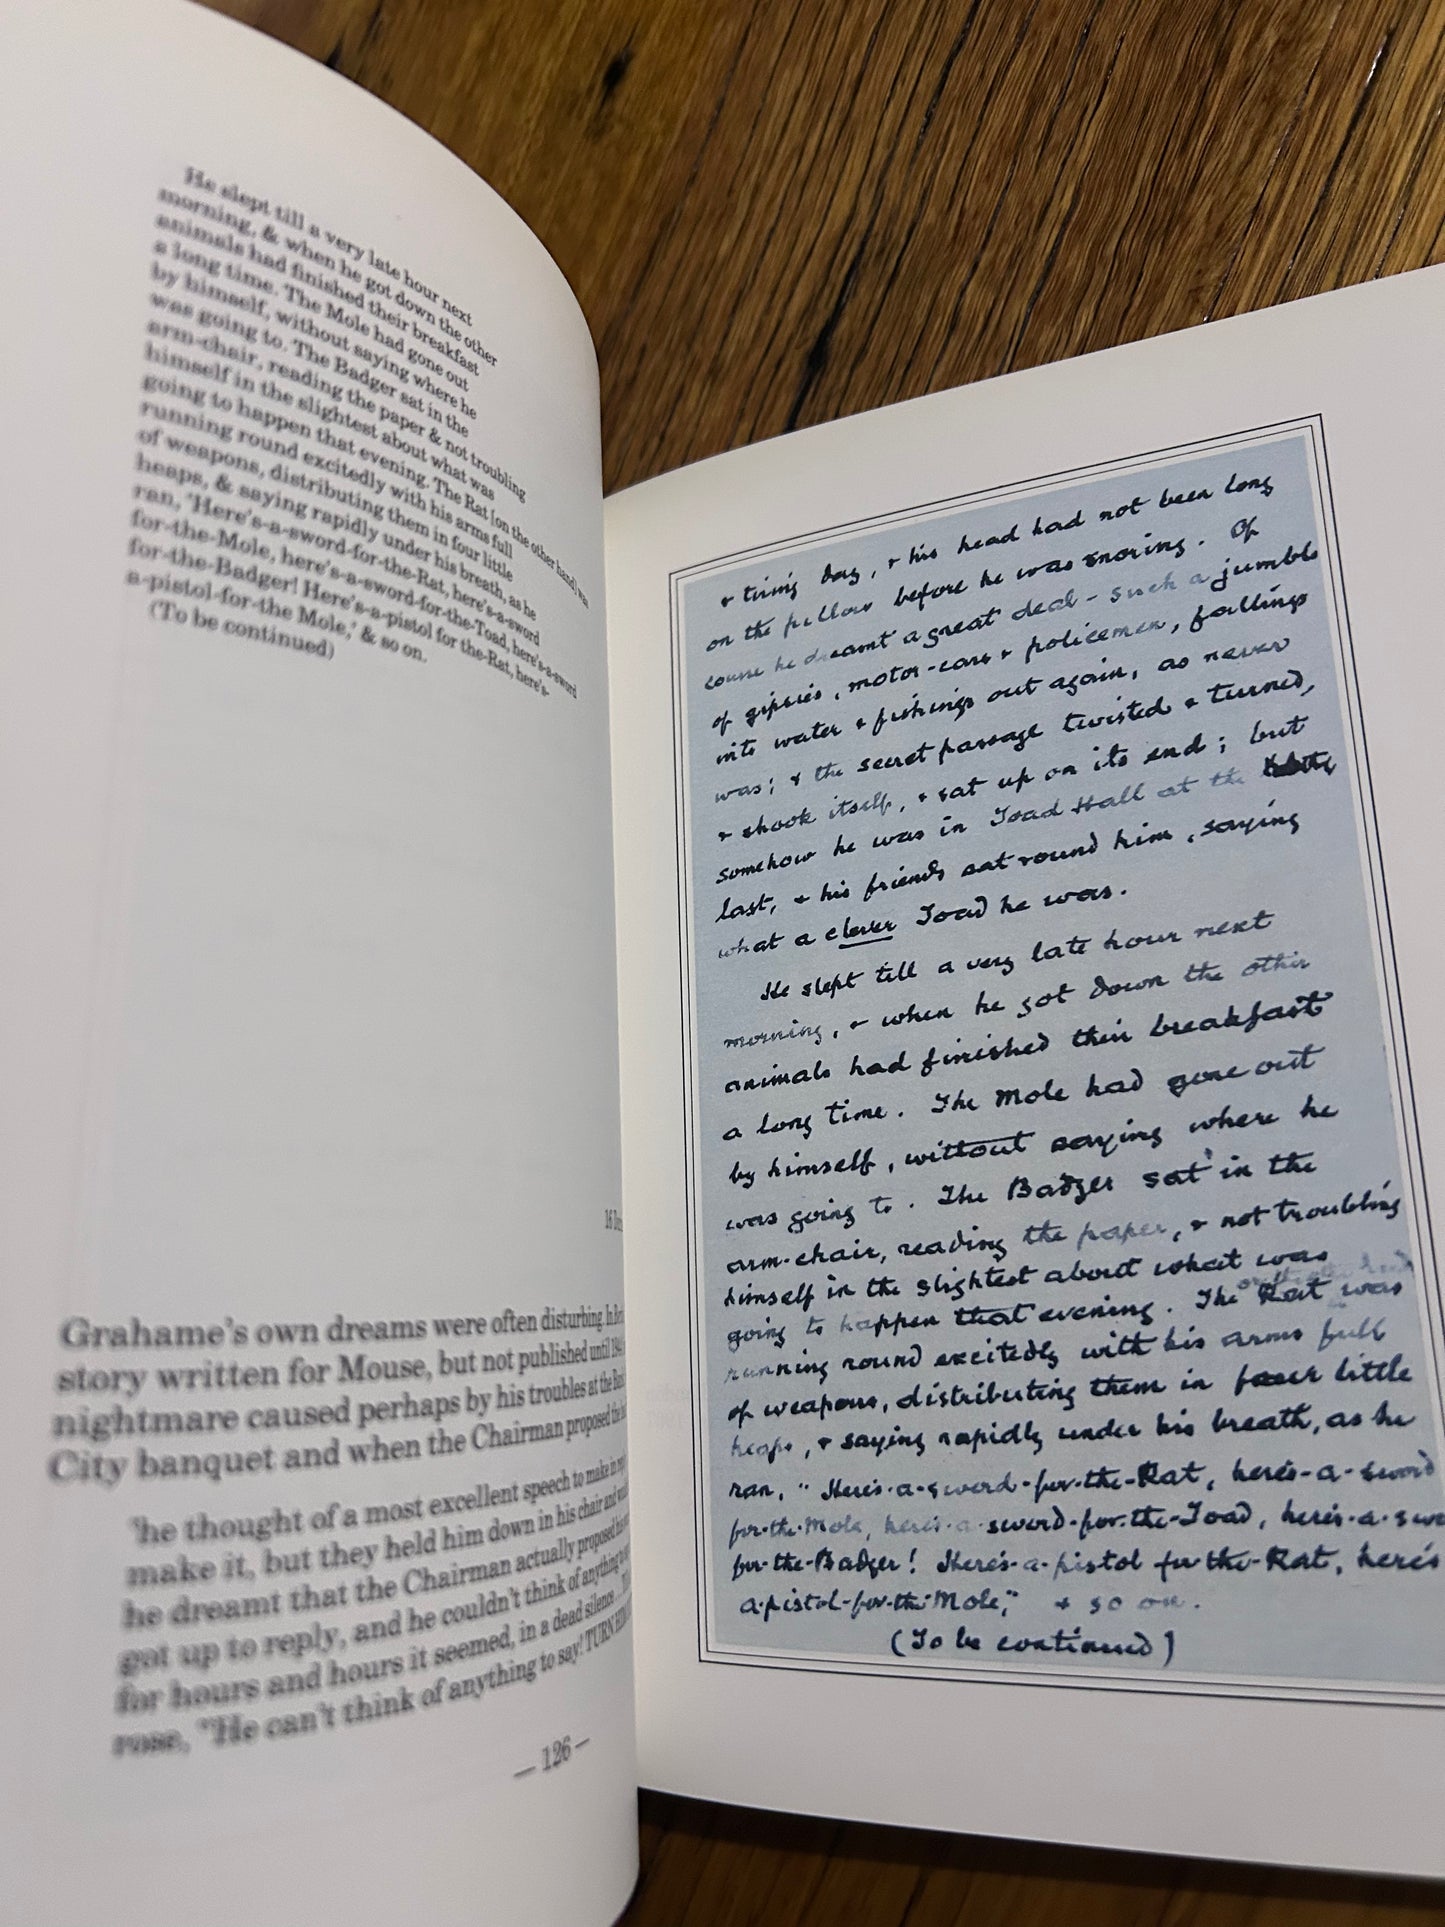 He slept till a very late hour next
morning, & when he got down the other
animals had finished their breakfast
a long time. The Mole had gone out
by himself, without saying where he
was going to. The Badger sat in the
arm-chair, reading the paper & not troubling
himself in the slightest about what was
going to happen that evening. The Rat [on the other hand] was
running round excitedly with his arms full
of weapons, distributing them in four little
heaps, & saying rapidly under his breath, as he
ran, 'Here's-a-sword-for-the-Rat, here's-a-sword
for-the-Mole, here's-a-sword-for-the-Toad, here's-a-sword
for-the-Badger! Here's-a-pistol for the-Rat, here's-
a-pistol-for-the Mole,' & so on.
(To be continued)
Grahame's own dreams were often disturbing. In
story written for Mouse, but not published until
nightmare caused perhaps by his troubles at the
City banquet and when the Chairman proposed
'he thought of a most excellent speech to make in
make it, but they held him down in his chair and
he dreamt that the Chairman actually proposed his
got up to reply, and he couldn't think of anything to
for hours and hours it seemed, in a dead silence
rose, "He can't think of anything to say! TURN
— 126 —
& tiring day, & his head had not been long
on the pillow before he was snoring. Of
course he dreamt a great deal - such a jumble
of gipsies, motor-cars & policemen, fallings
into water & fishings out again, as never
was; & the secret passage twisted & turned,
& shook itself, & sat up on its end; but
somehow he was in Toad Hall at the
last, & his friends sat round him, saying
what a clever Toad he was.
He slept till a very late hour next
morning, & when he got down the other
animals had finished their breakfast
a long time. The Mole had gone out
by himself, without saying where he
was going to. The Badger sat in the
arm-chair, reading the paper, & not troubling
himself in the slightest about what was
on the other hand
going to happen that evening. The Rat was
running round excitedly with his arms full
of weapons, distributing them in four little
heaps, & saying rapidly under his breath, as he
ran, "Here's-a-sword-for-the-Rat, here's-a-sword
for-the-Mole, here's-a-sword-for-the-Toad, here's-a-
for-the-Badger! Here's-a-pistol for-the-Rat, here's
a-pistol-for-the-Mole," & so on.
(To be continued)